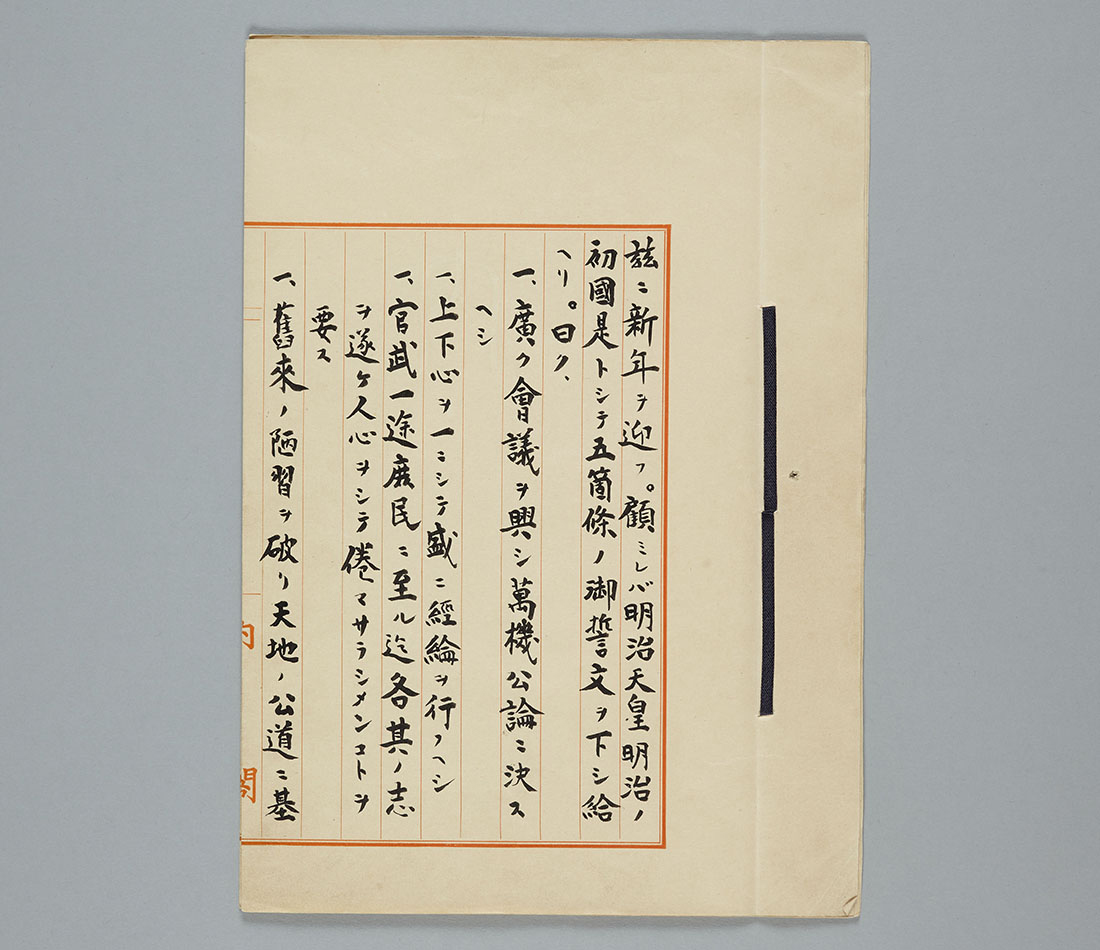 茲ニ新年ヲ迎フ。顧ミレバ明治天皇明治ノ
初國是トシテ五箇條ノ御誓文ヲ下シ給
ヘリ。曰ク、
一、廣ク會議ヲ興シ萬機公論ニ決ス
ヘシ
一、上下心ヲ一ニシテ盛ニ經綸ヲ行フヘシ
一、官武一途庶民ニ至ル迄各其ノ志
ヲ遂ケ人心ヲシテ倦マサラシメンコトヲ
要ス
一、舊來ノ陋習ヲ破リ天地ノ公道ニ基
内閣